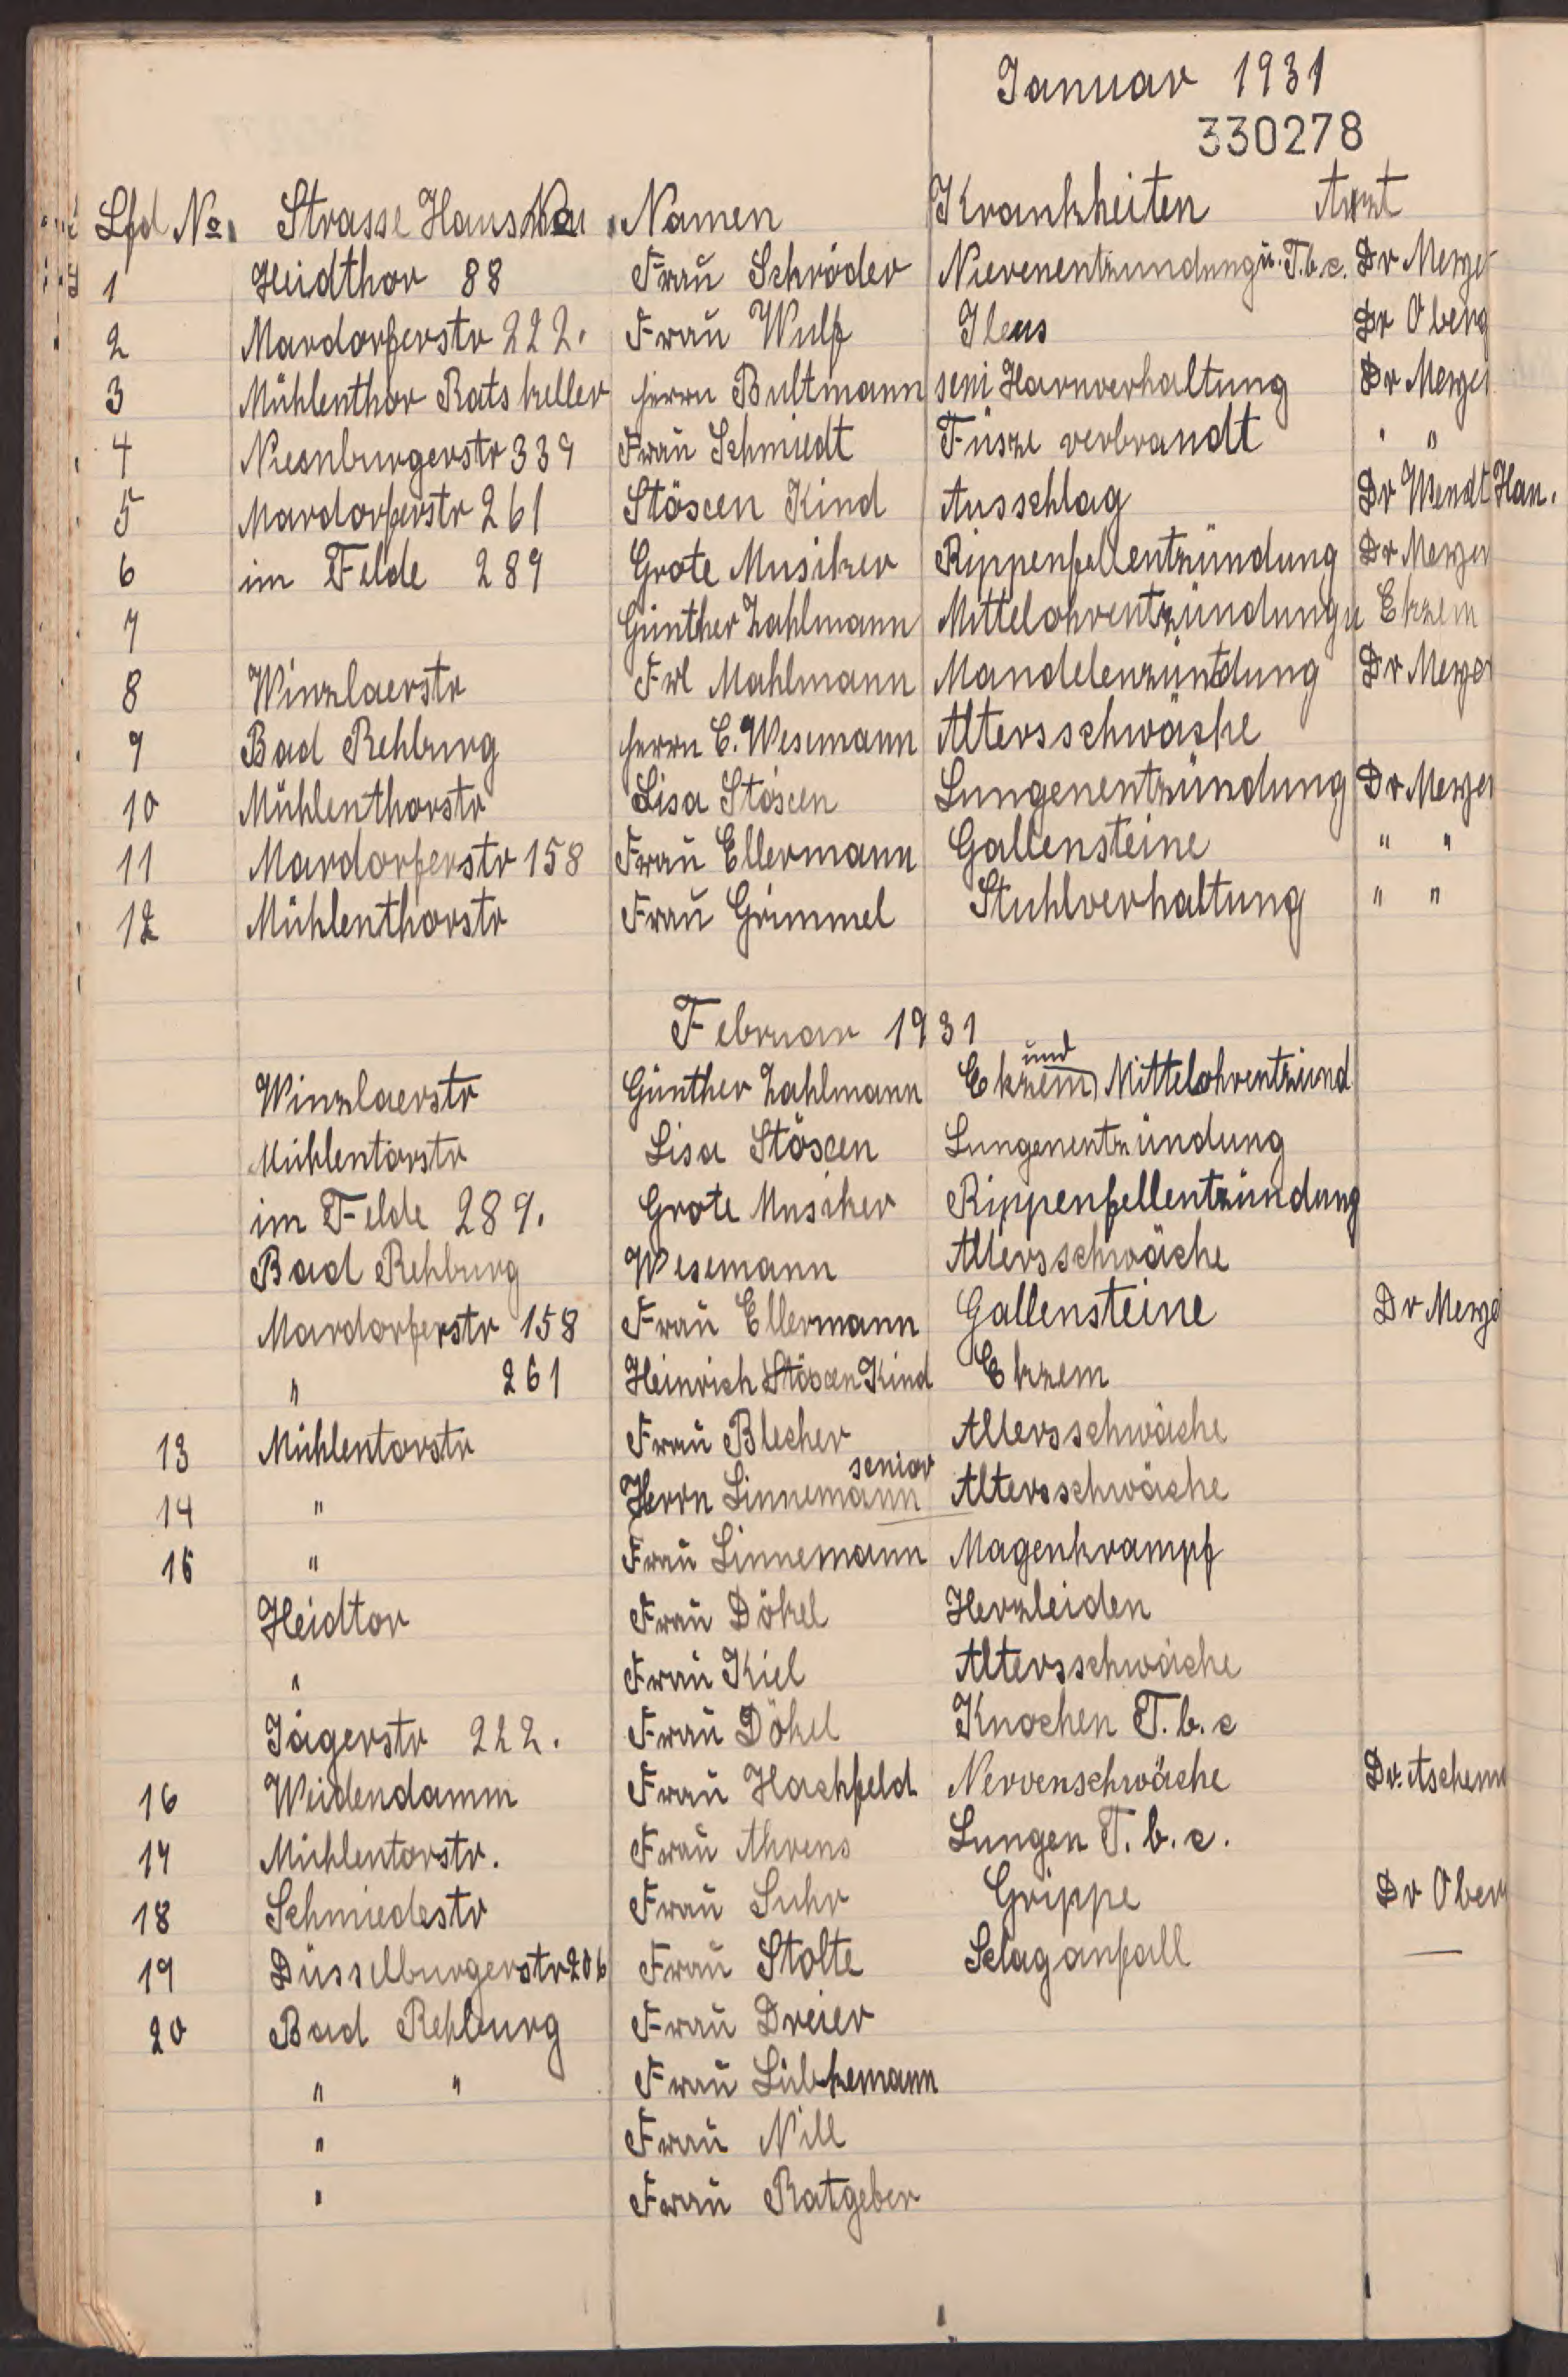 Januar 1931
330278
Lfd No. Strasse Haus No. Namen Krankheiten Arzt
1 Heidthor 88 Fraŭ Schröder Nierenentzundung ŭ. T.b.c. Dr Meyer
2 Mardorferstr 222. Fraŭ Wulf Ileus Dr Oberg
3 Mühlenthor Ratskeller Herrn Bultmann seni Harnverhaltung Dr Meyer
4 Nienburgerstr 339 Fraŭ Schmiedt Füsze verbrandt " "
5 Mardorferstr 261 Stöscen Kind Ausschlag Dr Wendt Han.
6 im Felde 289 Grote Musiker Rippenfellentzündung Dr Meyer
7 Günther Zahlmann Mittelohrentzündung u Ekzem
8 Winzlaerstr Frl Mahlmann Mandelenzüntdung Dr Meyer
9 Bad Rehburg Herrn C. Wesemann Altersschwäche
10 Mühlenthorstr Lisa Stöscen Lungenentzündung Dr Meyer
11 Mardorferstr 158 Fraŭ Ellermann Gallensteine " "
12 Mühlenthorstr Fraŭ Grimmel Stuhlverhaltung " "
Februar 1931
Winzlaerstr Günther Zahlmann Ekzem und Mittelohrentzünd
Mühlentorstr Lisa Stöscen Lungenentzündung
im Felde 289. Grote Musiker Rippenfellentzündung
Bad Rehburg Wesemann Altersschwäche
Mardorferstr 158 Fraŭ Ellermann Gallensteine Dr Meye
" 261 Heinrich Stöscen Kind Ekzem
13 Mühlentorstr Fraŭ Blecher Altersschwäche
14 " Herrn Linnemann senior Altersschwäche
15 " Fraŭ Linnemann Magenkrampf
Heidtor Fraŭ Dökel Herzleiden
" Fraŭ Kiel Altersschwäche
Jägerstr 222. Fraŭ Dökel Knochen T.b.c
16 Weidendamm Fraŭ Hachfeld Nervenschwäche Dr. Aschem
17 Mühlentorstr. Fraŭ Ahrens Lungen T.b.c.
18 Schmiedestr Fraŭ Suhr Grippe Dr Ober
19 Düsselburgerstr 206 Fraŭ Stolte Sclaganfall —
20 Bad Rehburg Fraŭ Dreier
" " Fraŭ Lübkemann
" Fraŭ Nill
" Fraŭ Ratgeber